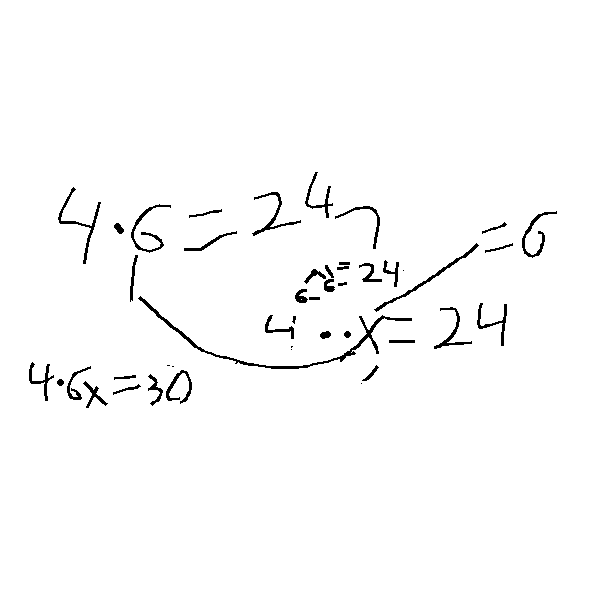 4·6=24
=6
=24
4··x=24
4·6x=30